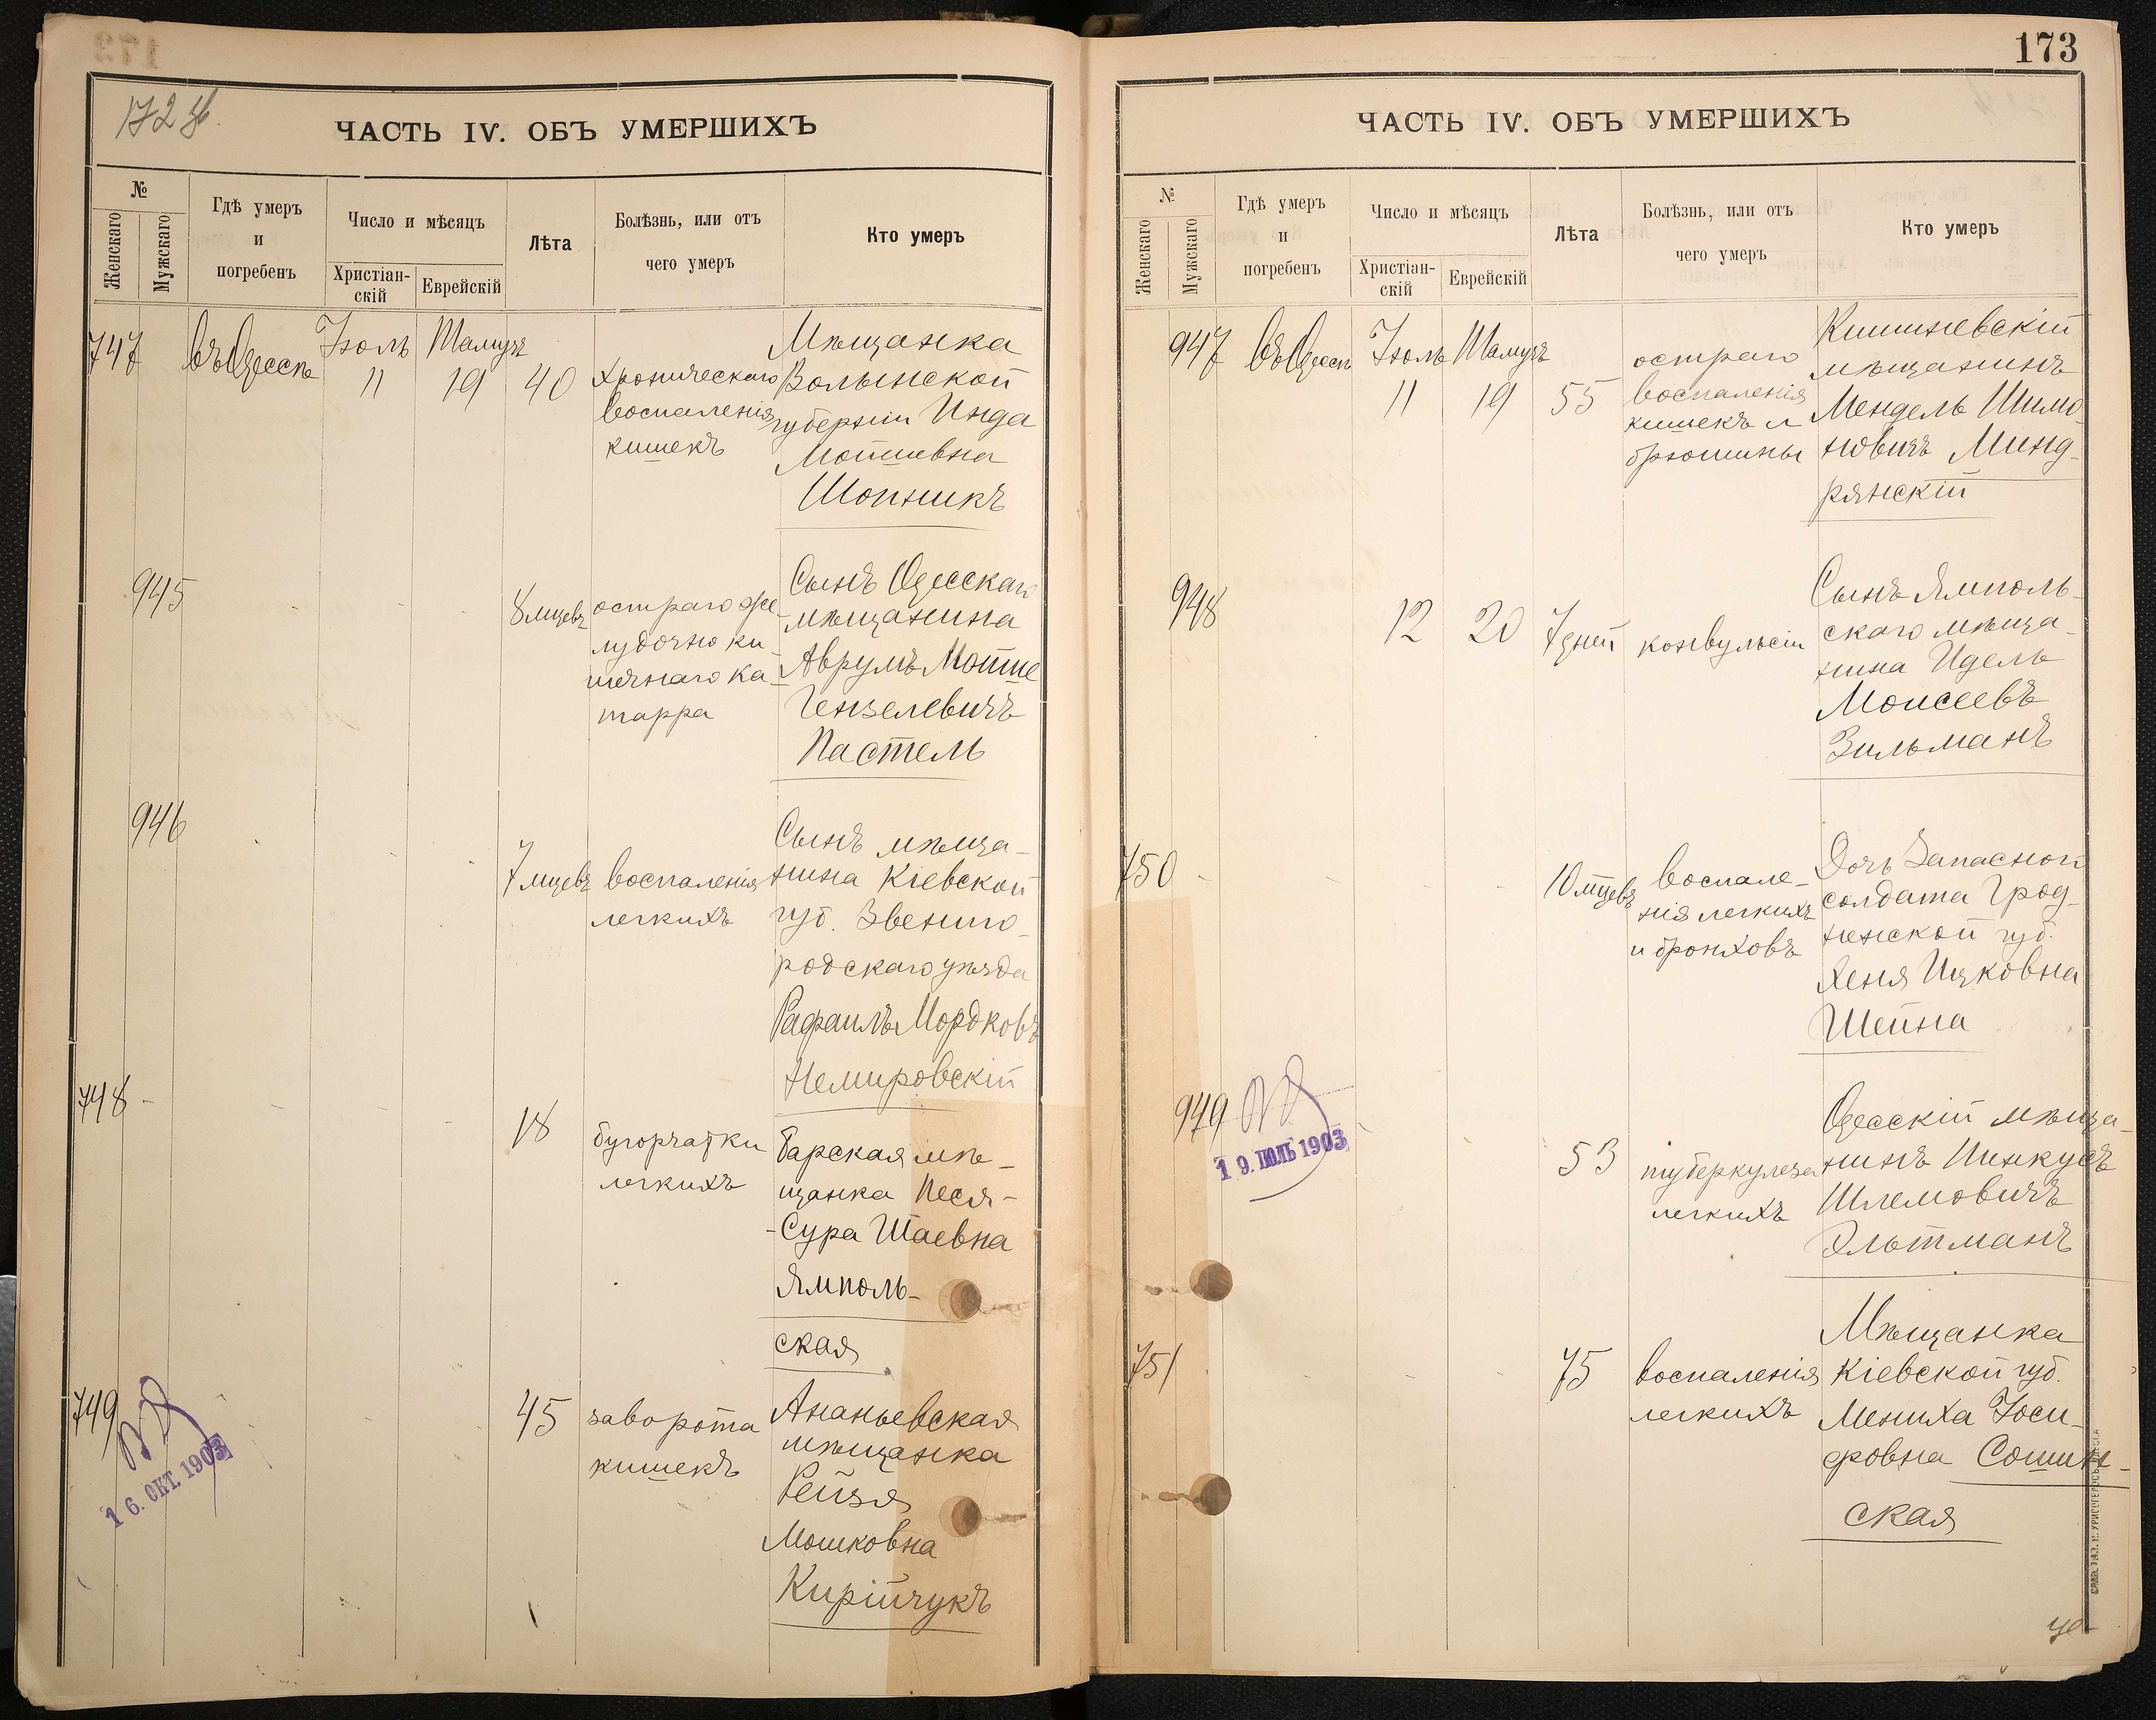 172 об.
ЧАСТЬ IV. ОБЪ УМЕРШИХЪ
№
Женскаго
Мужскаго
Гдѣ умеръ
и
погребенъ
Число и мѣсяцъ
Христіан-
скій
Еврейскій
Лѣта
Болѣзнь, или отъ
чего умеръ
Кто умеръ
747
въ Одессѣ
Іюль
11
Тамузъ
19
40
хроническаго
воспаленія
кишекъ
Мѣщанка
Волынской
губерніи Инда
Мошиевна
Шопникъ
945
8 мцевъ
остраго же-
лудочно ки-
шечнаго ка-
тарра
Сынъ Одесскаго
мѣщанина
Аврумъ Мошие
Гензелевичъ
Пастель
946
7 мцевъ
воспаленія
легкихъ
Сынъ мѣща-
нина Кіевской
губ. Звениго-
родскаго уѣзда
Рафаилъ Мордковъ
Немировскій
748
18
бугорчатки
легкихъ
Барская мѣ-
щанка Песя-
-Сура Шаевна
Ямполь-
ская
749
16. ОКТ. 1903
45
заворота
кишекъ
Ананьевская
мѣщанка
Рейзя
Мошковна
Кирійчукъ
173
ЧАСТЬ IV. ОБЪ УМЕРШИХЪ
№
Женскаго
Мужскаго
Гдѣ умеръ
и
погребенъ
Число и мѣсяцъ
Христіан-
скій
Еврейскій
Лѣта
Болѣзнь, или отъ
чего умеръ
Кто умеръ
947
въ Одессѣ
Іюль
11
Тамузъ
19
55
остраго
воспаленія
кишекъ и
брюшины
Кишиневскій
мѣщанинъ
Мендель Шимо
новичъ Минд-
рянскій
948
12
20
7 дней
конвульсіи
Сынъ Ямполь-
скаго мѣща-
нина Идель
Моисеевъ
Зильманъ
750
10 мцевъ
воспале-
нія легкихъ
и бронховъ
Дочь Запасной
солдата Грод-
ненской губ.
Хеня Ицковна
Шейна
949
19. ІЮЛЬ 1903
53
туберкулеза
легкихъ
Одесскій мѣща-
нинъ Пинкусъ
Шлемовичъ
Эльтманъ
751
75
воспаленія
легкихъ
Мѣщанка
Кіевской губ.
Мениха Іоси-
фовна Сошин-
ская